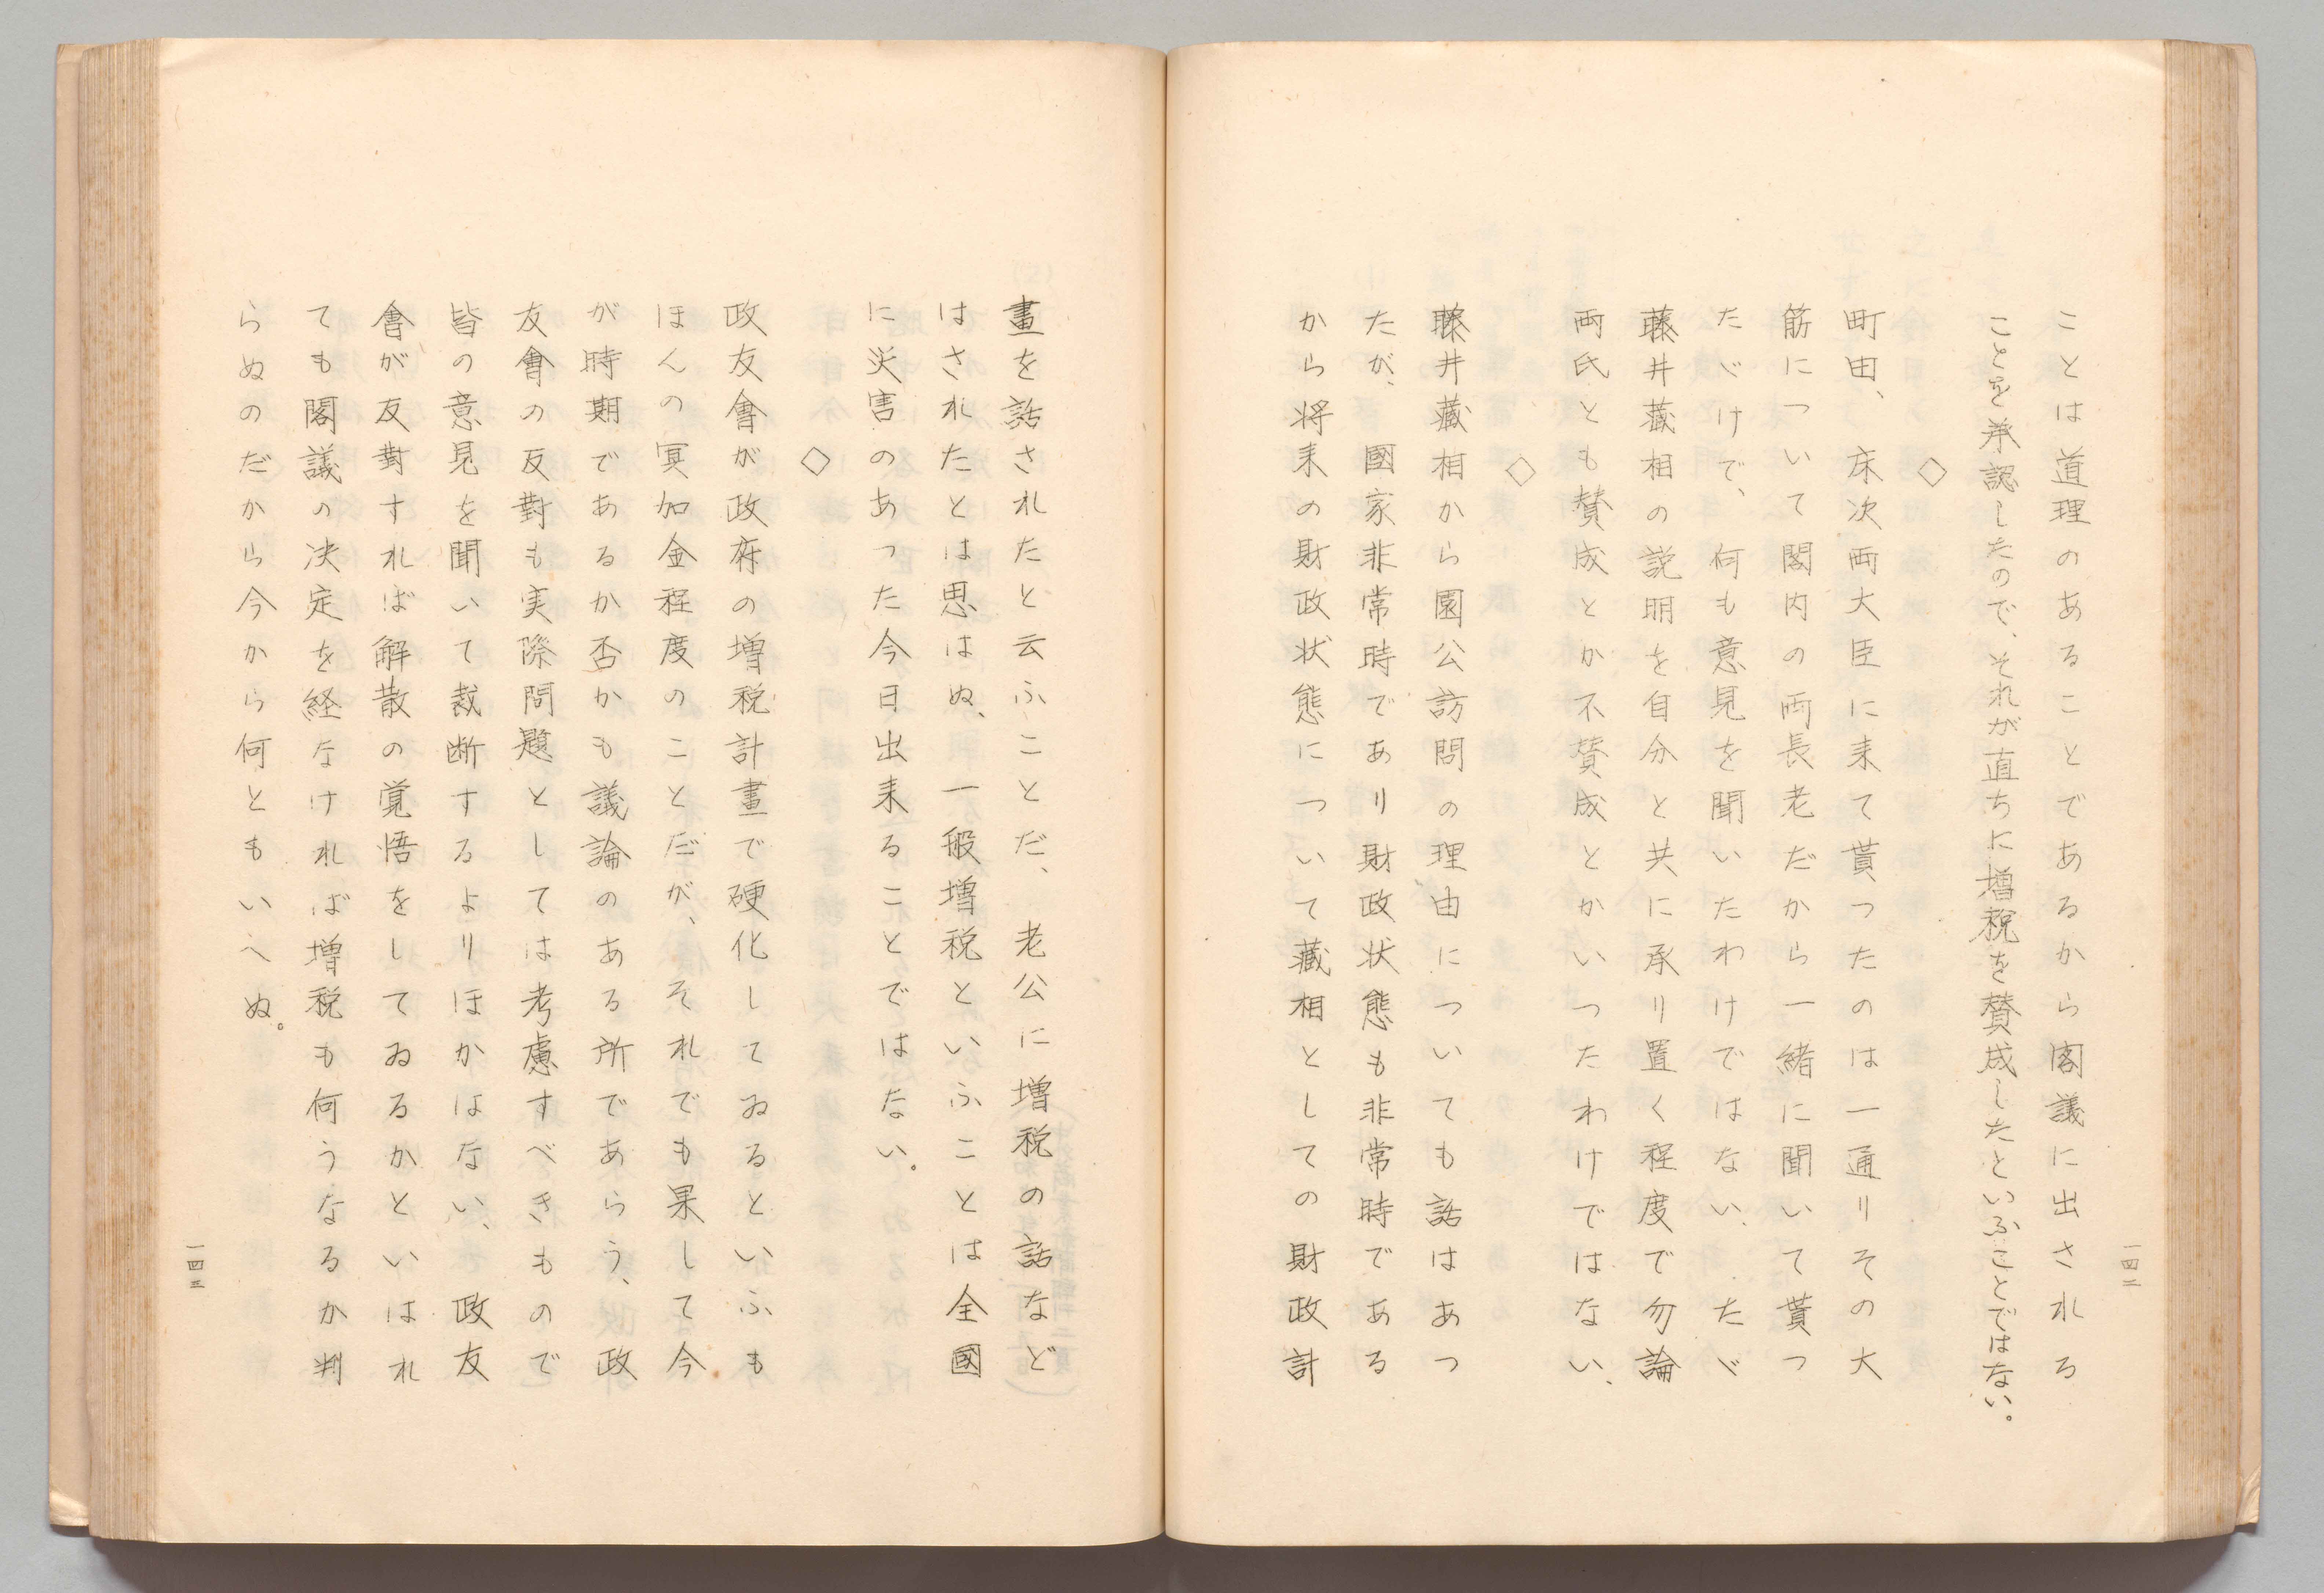 ことは道理のあることであるから閣議に出される
ことを承認したので、それが直ちに増税を賛成したといふことではない。
◇
町田、床次両大臣に来て貰つたのは一通りその大
筋について閣内の両長老だから一緒に聞いて貰つ
たゞけで、何も意見を聞いたわけではない、たゞ
藤井蔵相の説明を自分と共に承り置く程度で勿論
両氏とも賛成とか不賛成とかいつたわけではない、
◇
藤井蔵相から園公訪問の理由についても話はあつ
たが、國家非常時であり財政状態も非常時である
から将来の財政状態について蔵相としての財政計
一四二
畫を話されたと云ふことだ、老公に増税の話など
はされたとは思はぬ、一般増税といふことは全國
に災害のあつた今日出来ることではない。
◇
政友會が政府の増税計畫で硬化してゐるといふも
ほんの冥加金程度のことだが、それでも果して今
が時期であるか否かも議論のある所であらう、政
友會の反對も実際問題としては考慮すべきもので
皆の意見を聞いて裁断するよりほかはない、政友
會が反對すれば解散の覚悟をしてゐるかといはれ
ても閣議の決定を経なければ増税も何うなるか判
らぬのだから今から何ともいへぬ。
一四三